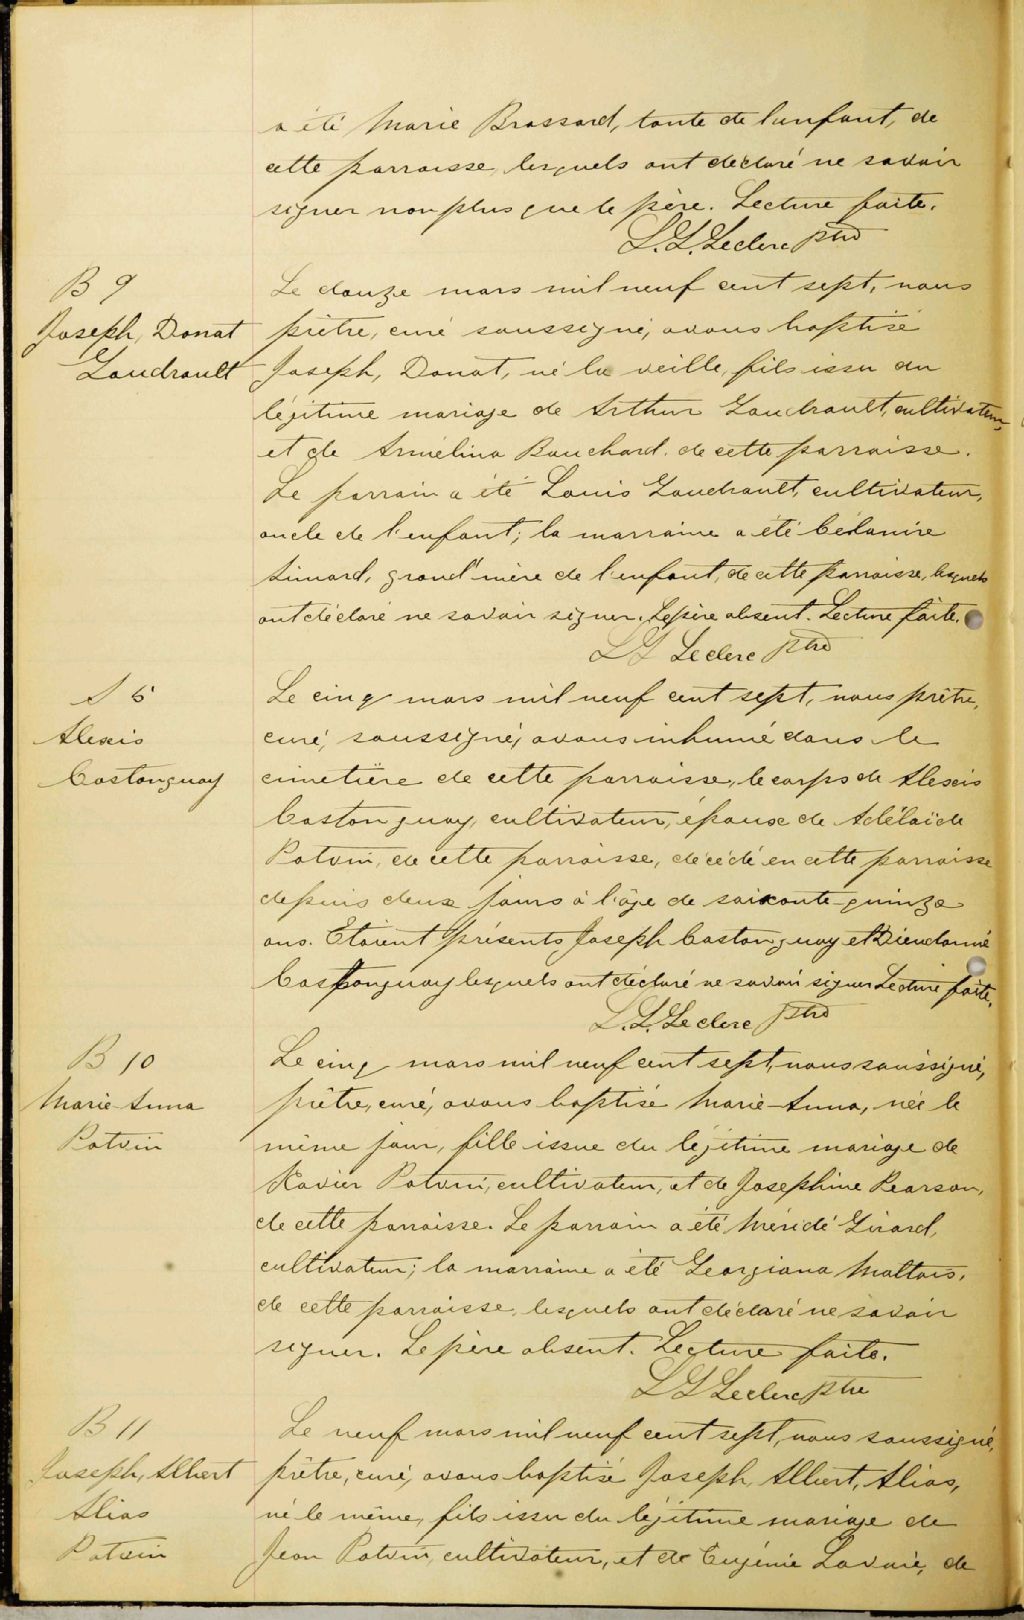 a été Marie Brassard, tante de l'enfant, de
cette parroisse, lesquels ont déclaré ne savoir
signer non plus que le père. Lecture faite.
L. G. Leclerc ptre
B 9
Joseph, Donat
Gaudrault
Le douze mars mil neuf cent sept, nous
prêtre, curé soussigné, avons baptisé
Joseph, Donat, né la veille, fils issu du
légitime mariage de Arthur Gaudrault, cultivateur,
et de Armélina Bouchard. de cette parroisse.
Le parrain a été Louis Gaudrault, cultivateur,
oncle de l'enfant; la marraine a été Célanire
Simard, grand'mère de l'enfant, de cette parroisse, lesquels
ont déclaré ne savoir signer. Le père absent. Lecture faite.
L G Leclerc ptre
S 5
Alexis
Castonguay
Le cinq mars mil neuf cent sept, nous prêtre,
curé, soussigné, avons inhumé dans le
cimetière de cette parroisse, le corps de Alexis
Castonguay, cultivateur, époux de Adélaïde
Potvin, de cette parroisse, décédé en cette parroisse
depuis deux jours à l'âge de soixante-quinze
ans. Etaient présents Joseph Castonguay et Dieudonné
Castonguay lesquels ont déclaré ne savoir signer Lecture faite.
L. G. Leclerc ptre
B 10
Marie-Anna
Potvin
Le cinq mars mil neuf cent sept, nous soussigné,
prêtre, curé, avons baptisé Marie-Anna, née le
même jour, fille issue du légitime mariage de
Xavier Potvin, cultivateur, et de Josephine Pearson,
de cette parroisse. Le parrain a été Méridé Girard,
cultivateur; la marraine a été Georgiana Maltais,
de cette parroisse, lesquels ont déclaré ne savoir
signer. Le père absent. Lecture faite.
L G Leclerc ptre
B 11
Joseph, Albert
Alias
Potvin
Le neuf mars mil neuf cent sept, nous soussigné,
prêtre, curé, avons baptisé Joseph, Albert, Alias,
né le même, fils issu du légitime mariage de
Jean Potvin, cultivateur, et de Eugénie Lavoie, de